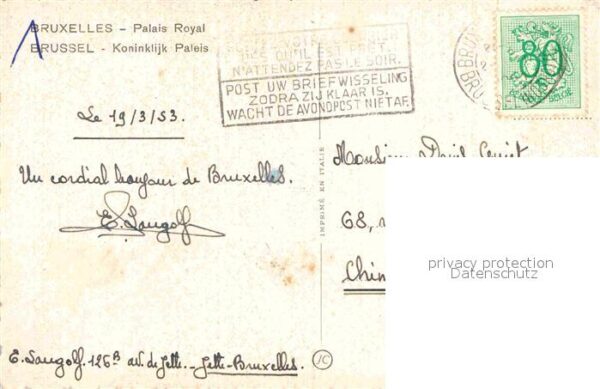 BRUXELLES – Palais Royal
BRUSSEL - Koninklijk Paleis
QU'IL EST PRÊT.
N'ATTENDEZ PAS LE SOIR.
POST UW BRIEFWISSELING
ZODRA ZIJ KLAAR IS.
WACHT DE AVONDPOST NIET AF.
80
Le 19/3/53.
Un cordial bonjour de Bruxelles.
E. Laugolf
IMPRIMÉ EN ITALIE
Monsieur
68,
Chim
privacy protection
Datenschutz
E. Laugolf. 126B av. de Jette. Jette-Bruxelles.